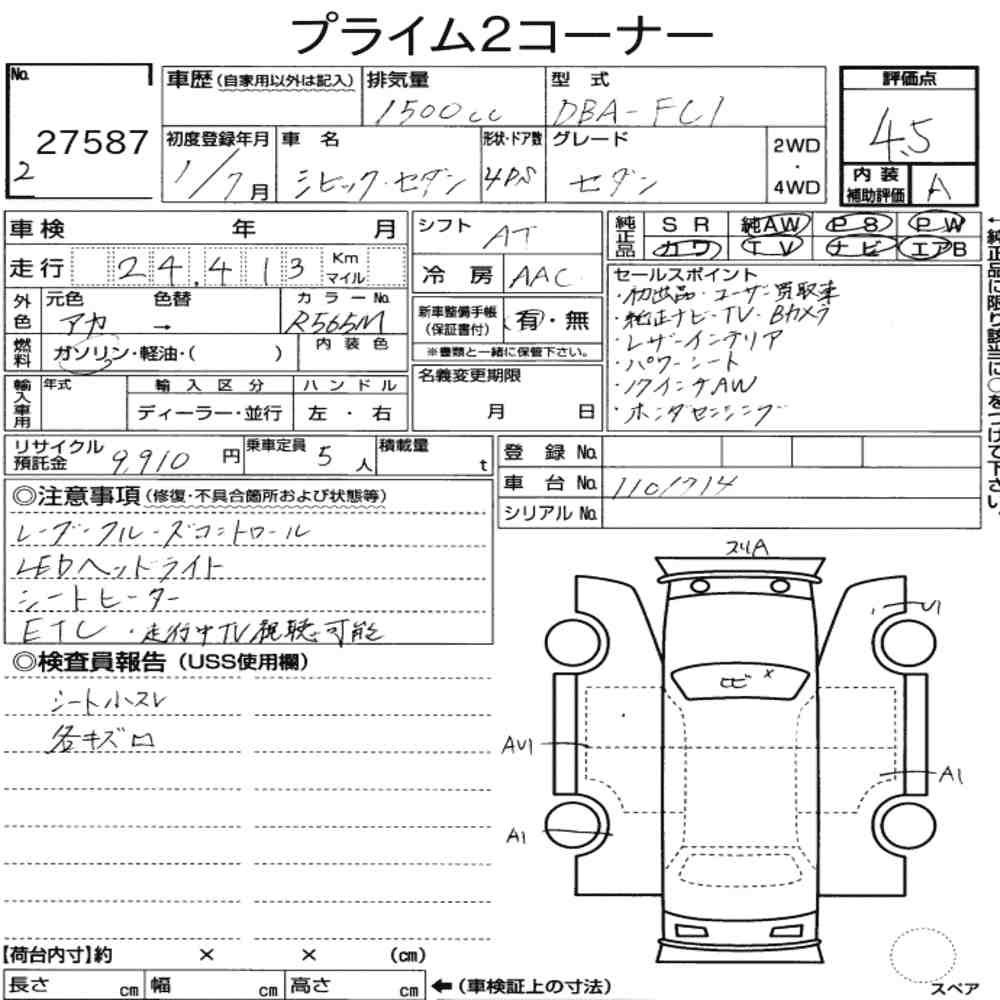 プライム2コーナー
No. 27587
2
車歴(自家用以外は記入) 排気量 1500cc 型式 DBA-FC1
評価点 4.5
内装補助評価 A
初度登録年月 1/7月 車名 シビック・セダン 形状・ドア数 4DS グレード セダン 2WD・4WD
車検 年 月
シフト AT
走行 24,413 Km マイル
冷房 AAC
純正品 SR 純AW PS PW
カワ TV ナビ エアB
←純正品に限り該当に○をつけて下さい。
外色 元色 アカ 色替 → カラーNo. R565M
燃料 ガソリン・軽油・( ) 内装色
新車整備手帳(保証書付) 有・無
※書類と一緒に保管下さい。
セールスポイント
・初出品・ユーザー買取車
・純正ナビ・TV・Bカメラ
・レザーインテリア
・パワーシート
・17インチAW
・ホンダセンシング
輸入車用 年式 輸入区分 ハンドル
ディーラー・並行 左・右
名義変更期限
月 日
リサイクル預託金 9,910円 乗車定員 5人 積載量 t
登録No.
車台No. 1101714
シリアルNo.
◎注意事項(修復・不具合箇所および状態等)
レーダークルーズコントロール
LEDヘッドライト
シートヒーター
ETC ・走行中TV視聴可能
◎検査員報告(USS使用欄)
シート小スレ
各キズ凹
スリA
U1
ヒビ x
AU1
A1
A1
【荷台内寸】約 × × (cm)
長さ cm 幅 cm 高さ cm ←(車検証上の寸法)
スペア